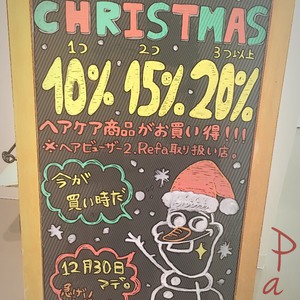 CHRISTMAS
1つ 2つ 3つ以上
10% 15% 20%
ヘアケア商品がお買い得!!!
※ヘアビューザー2.Refa取り扱い店。
今が
買い時だ
12月30日
マデ。
急げ!
Pa